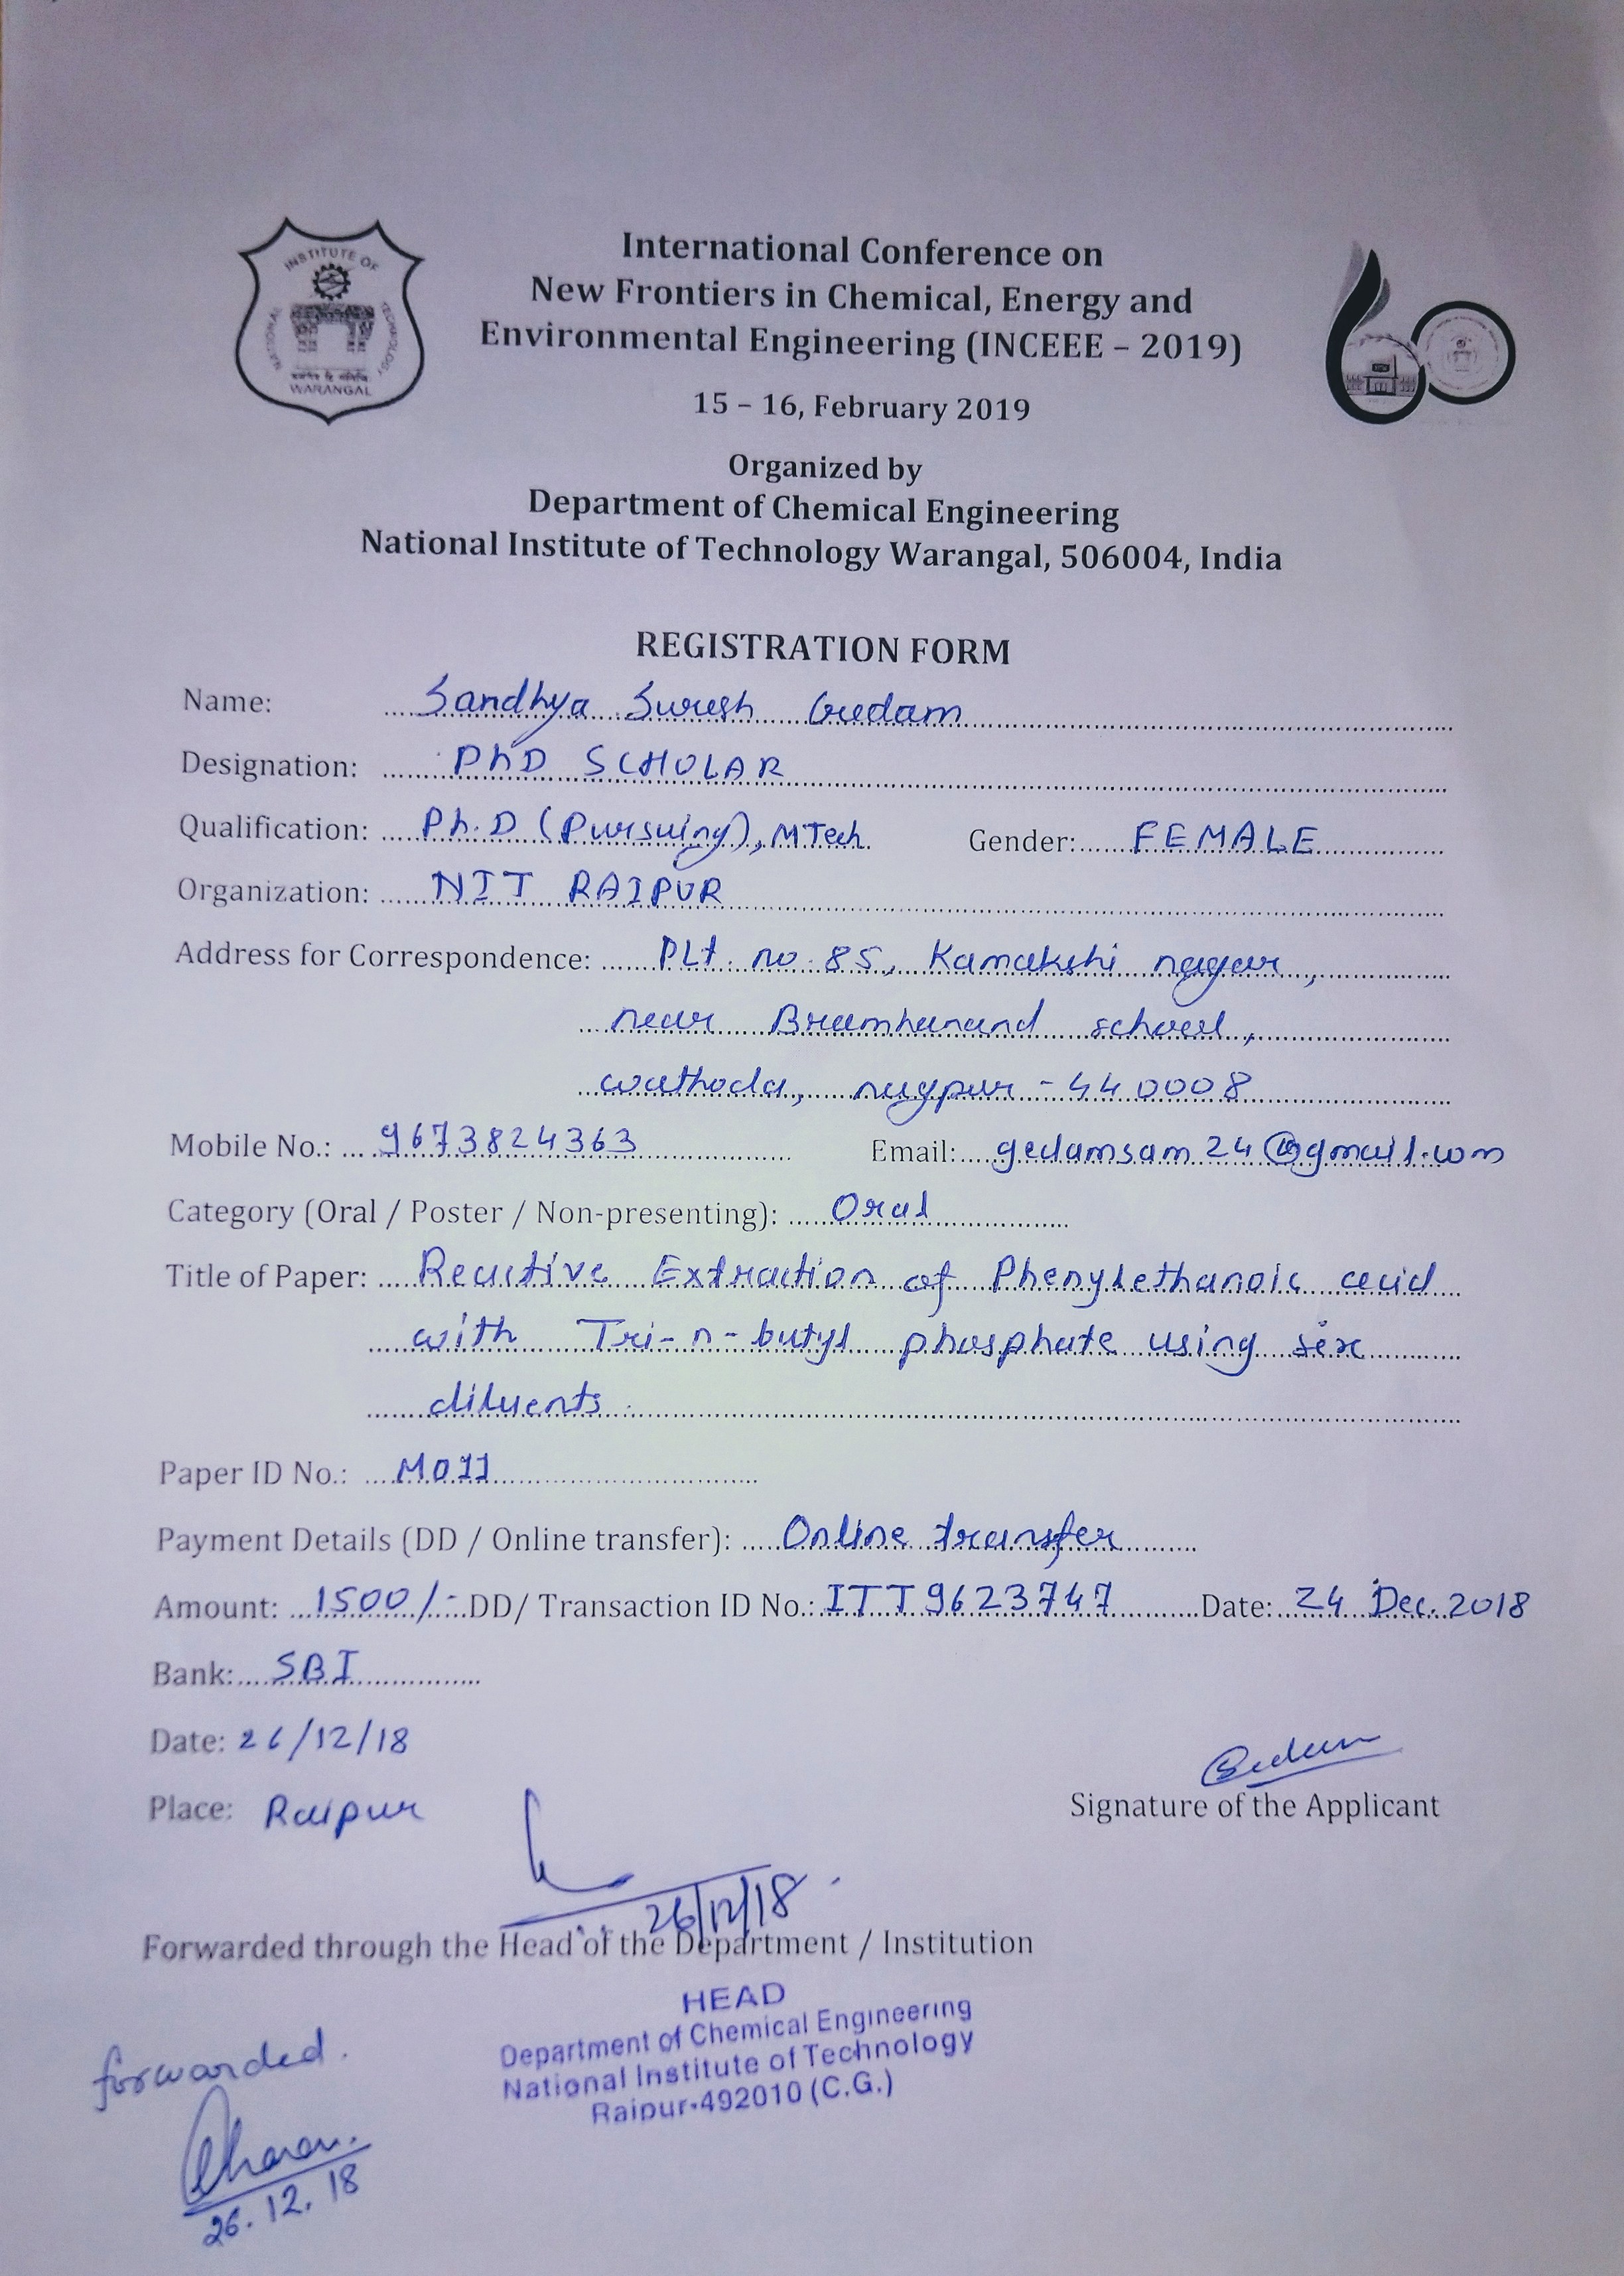 INSTITUTE OF
NATIONAL
TECHNOLOGY
WARANGAL
International Conference on
New Frontiers in Chemical, Energy and
Environmental Engineering (INCEEE – 2019)
15 – 16, February 2019
Organized by
Department of Chemical Engineering
National Institute of Technology Warangal, 506004, India
REGISTRATION FORM
Name: Sandhya Suresh Gedam
Designation: PhD SCHOLAR
Qualification: Ph.D (Pursuing), MTech. Gender: FEMALE
Organization: NIT RAIPUR
Address for Correspondence: PLt. no. 85, Kamakshi nagar,
near Bramhanand school,
wathoda, nagpur - 440008
Mobile No.: 9673824363 Email: gedamsam24@gmail.com
Category (Oral / Poster / Non-presenting): Oral
Title of Paper: Reactive Extraction of Phenylethanoic acid
with Tri-n-butyl phosphate using six
diluents.
Paper ID No.: M011
Payment Details (DD / Online transfer): Online transfer
Amount: 1500/- DD/ Transaction ID No.: ITT9623747 Date: 24 Dec. 2018
Bank: SBI
Date: 26/12/18
Place: Raipur
Gedam
Signature of the Applicant
26/12/18
Forwarded through the Head of the Department / Institution
HEAD
Department of Chemical Engineering
National Institute of Technology
Raipur-492010 (C.G.)
forwarded.
26.12.18